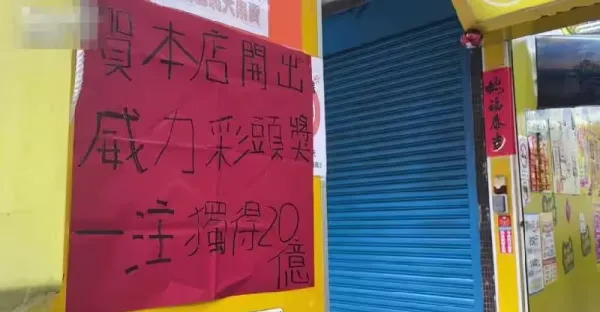 賀本店開出
威力彩頭獎
一注獨得20億